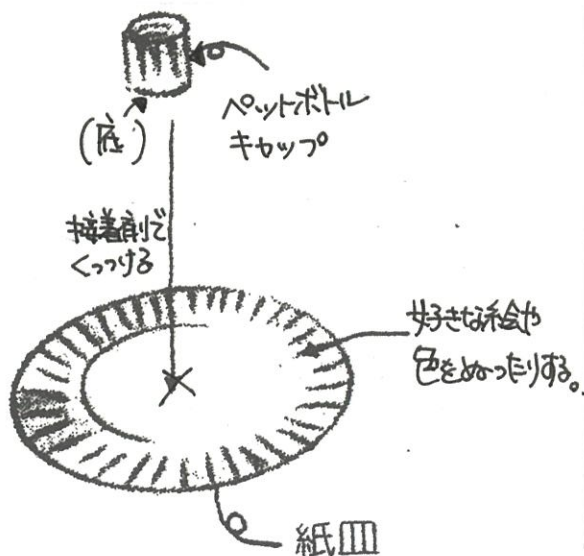 ペットボトル
キャップ
(底)
接着剤で
くっつける
好きな絵や
色をぬったりする。
紙皿